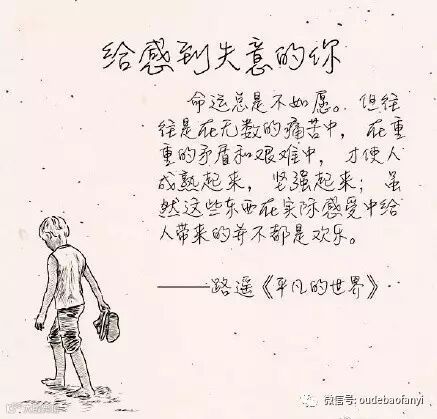 给感到失意的你
命运总是不如愿。但往
往是在无数的痛苦中，在重
重的矛盾和艰难中，才使人
成熟起来，坚强起来；虽
然这些东西在实际感受中给
人带来的并不都是欢乐。
——路遥《平凡的世界》
微信号: oudebaofanyi